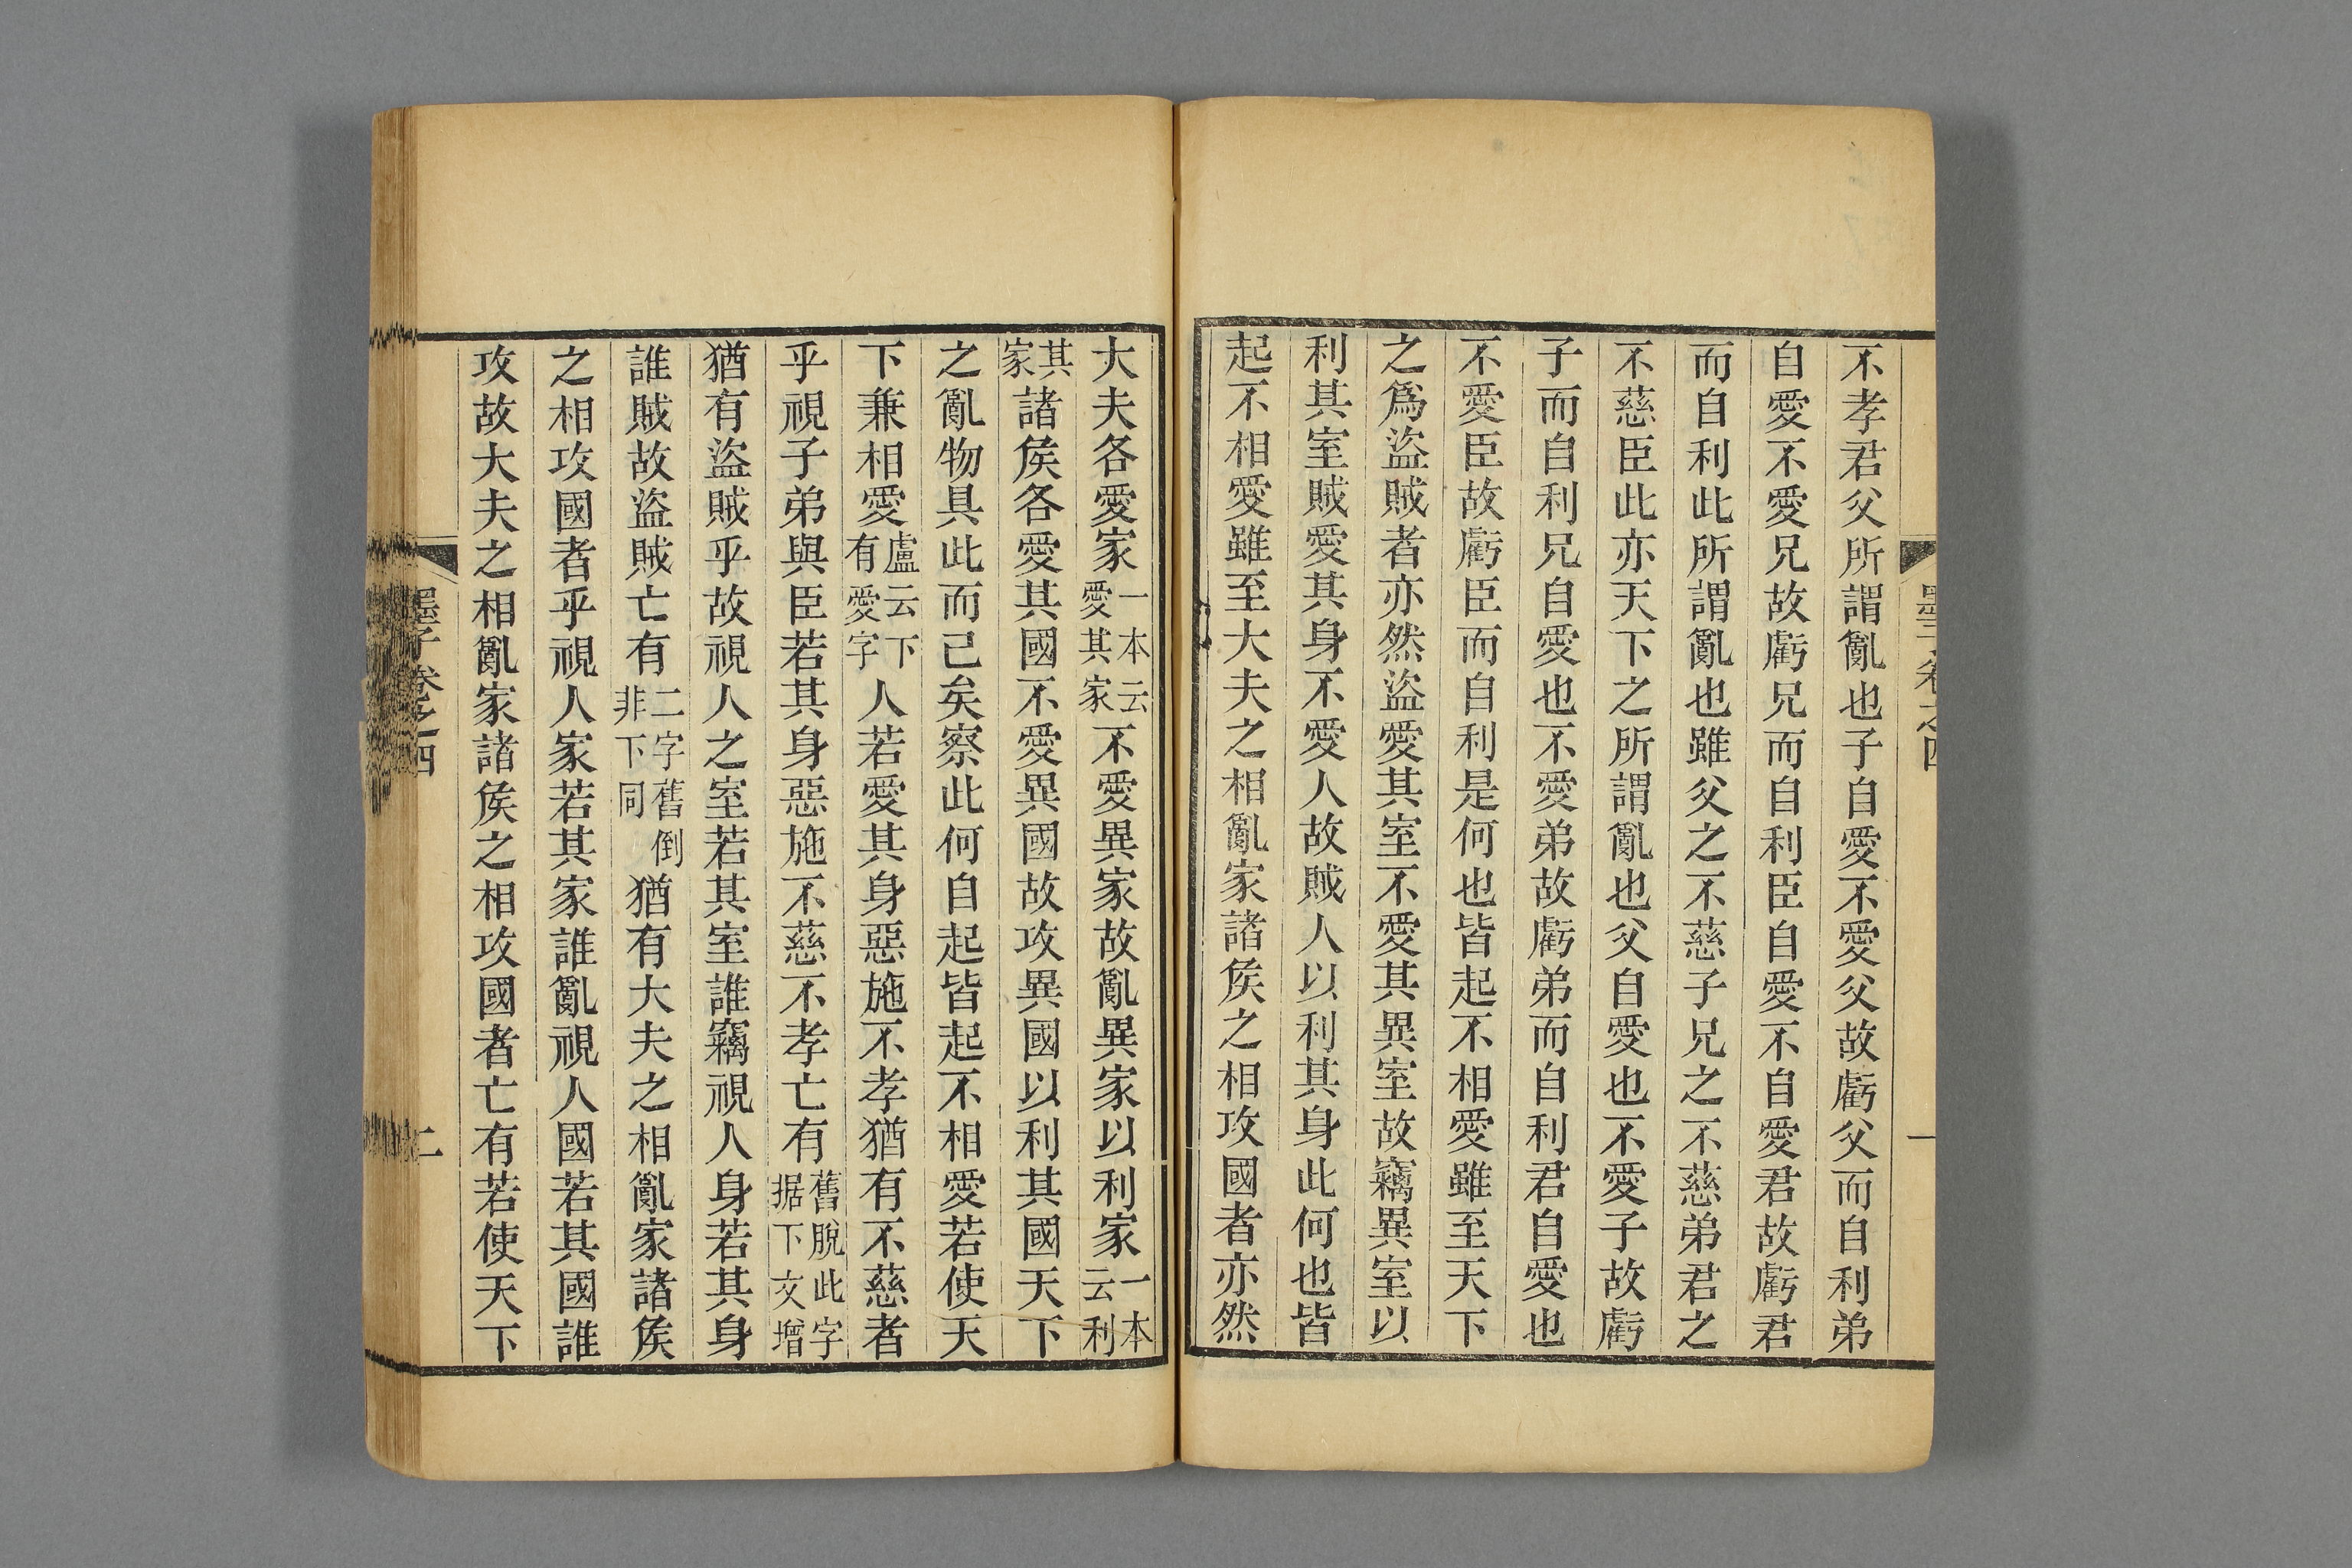 墨子卷之四
一
不孝君父所謂亂也子自愛不愛父故虧父而自利弟
自愛不愛兄故虧兄而自利臣自愛不自愛君故虧君
而自利此所謂亂也雖父之不慈子兄之不慈弟君之
不慈臣此亦天下之所謂亂也父自愛也不愛子故虧
子而自利兄自愛也不愛弟故虧弟而自利君自愛也
不愛臣故虧臣而自利是何也皆起不相愛雖至天下
之爲盜賊者亦然盜愛其室不愛其異室故竊異室以
利其室賊愛其身不愛人故賊人以利其身此何也皆
起不相愛雖至大夫之相亂家諸矦之相攻國者亦然
大夫各愛家一本云愛其家不愛異家故亂異家以利家一本云利
其家諸矦各愛其國不愛異國故攻異國以利其國天下
之亂物具此而己矣察此何自起皆起不相愛若使天
下兼相愛盧云下有愛字人若愛其身惡施不孝猶有不慈者
乎視子弟與臣若其身惡施不慈不孝亡有舊脫此字据下文增
猶有盜賊乎故視人之室若其室誰竊視人身若其身
誰賊故盜賊亡有二字舊倒非下同猶有大夫之相亂家諸矦
之相攻國者乎視人家若其家誰亂視人國若其國誰
攻故大夫之相亂家諸矦之相攻國者亡有若使天下
墨子卷之四
二